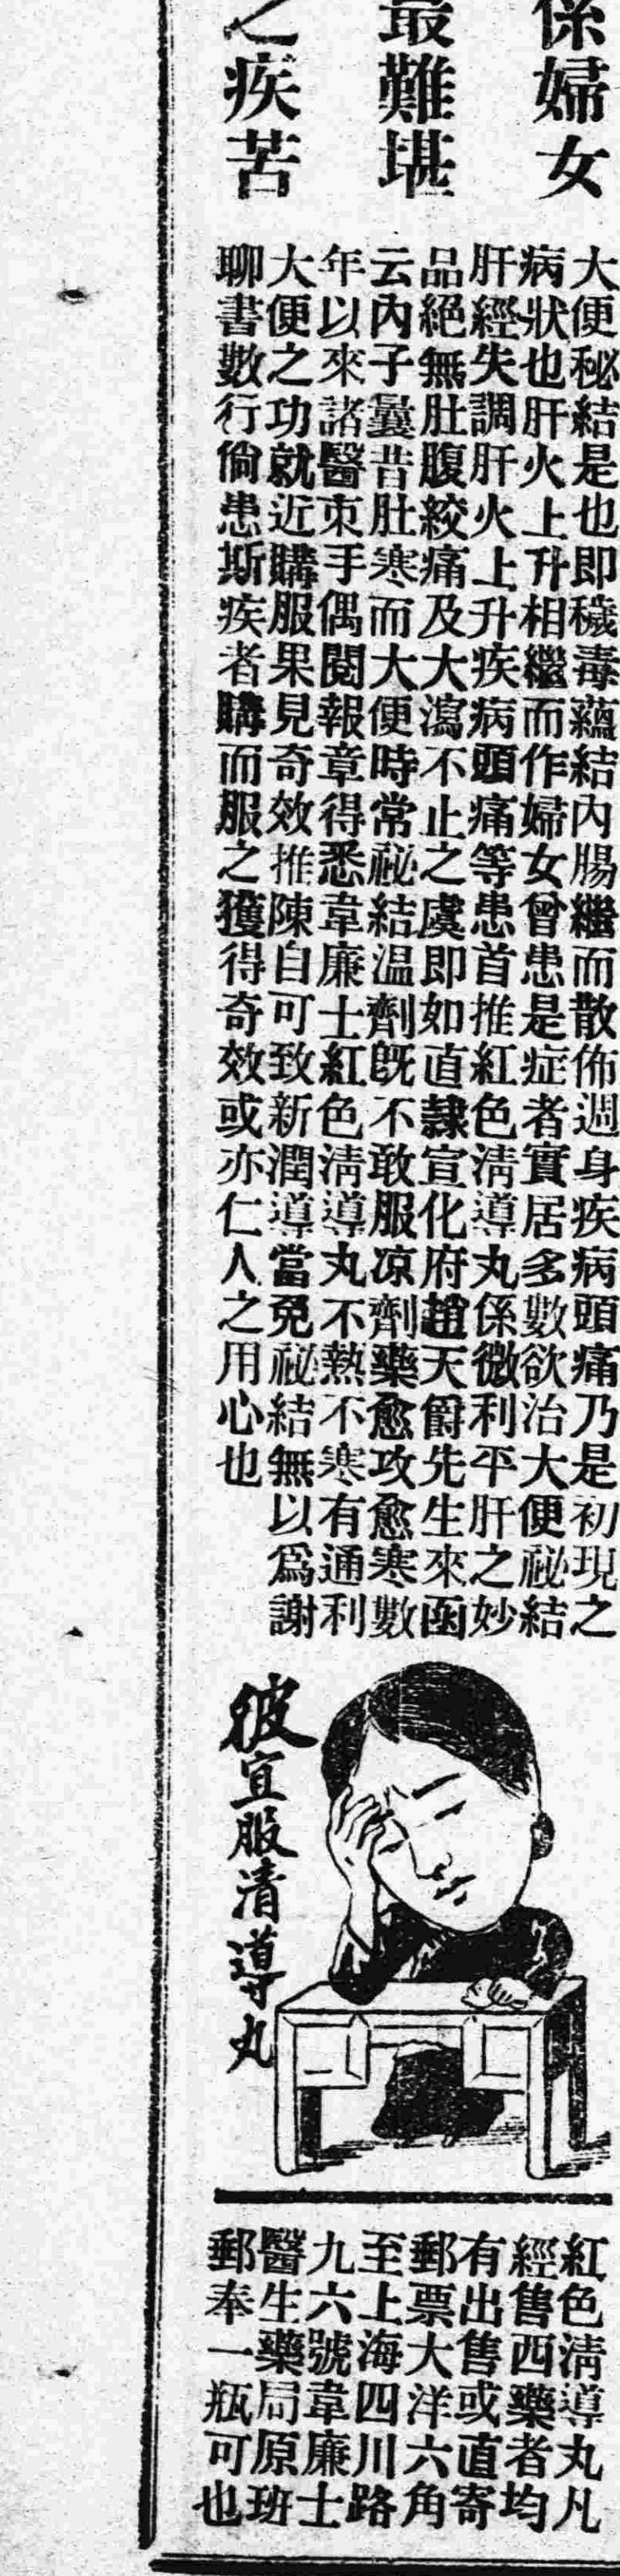 係婦女
最難堪
之疾苦
大便秘結是也即穢毒蘊結內腸繼而散佈週身疾病頭痛乃是初現之
病狀也肝火上升相繼而作婦女曾患是症者實居多數欲治大便祕結
肝經失調肝火上升疾病頭痛等患首推紅色清導丸係微利平肝之妙
品絕無肚腹絞痛及大瀉不止之虞即如直隸宣化府趙天爵先生來函
云內子曩昔肚寒而大便時常祕結温劑既不敢服凉劑藥愈攻愈寒數
年以來諸醫束手偶閱報章得悉韋廉士紅色清導丸不熱不寒有通利
大便之功就近購服果見奇效推陳自可致新潤導當免祕結無以爲謝
聊書數行倘患斯疾者購而服之獲得奇效或亦仁人之用心也
彼宜服清導丸
紅色清導丸凡
經售西藥者均
有出售或直寄
郵票大洋六角
至上海四川路
九六號韋廉士
醫生藥局原班
郵奉一瓶可也